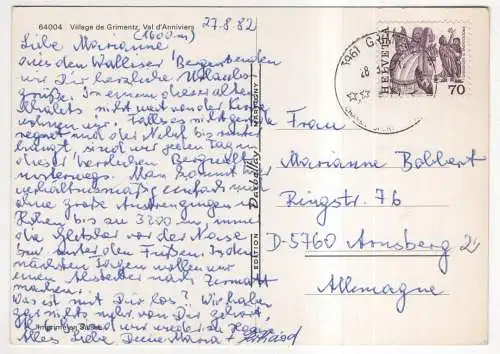 64004 Village de Grimentz, Val d'Anniviers
27.8.82
(1600 m)
Liebe Marianne
aus den Walliser Bergen senden
wir Dir herzliche Urlaubs-
grüße. In einem dieser alten
Chalets nicht weit von der Kirche
wohnen wir. Falls es nicht gerade
regnet und der Nebel bis
hängt, sind wir jeden Tag in
dieser herrlichen Bergwelt
unterwegs. Man kommt hier
verhältnismäßig einfach und
ohne große Anstrengungen in
Höhen bis zu 3200 m, immer
die Gletscher vor der Nase
bzw. unter den Füßen. In den
nächsten Tagen wollen wir
einen Abstecher nach Zermatt
machen.
Was ist mit Dir los? Wir haben
gar nichts mehr von Dir gehört,
Alles Liebe Deine Maria +
Imprimé en Suisse
EDITION Darbellay MARTIGNY
3961 GRIM
28
HELVETIA
70
Frau
Marianne Bobbert
Ringstr. 76
D-5760 Arnsberg 2
Allemagne